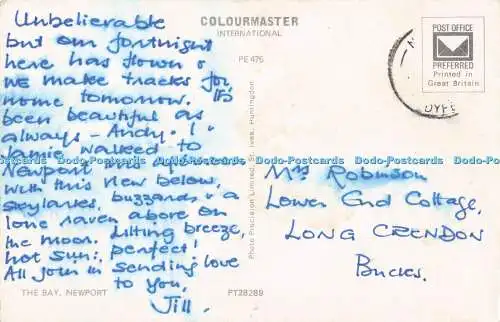 Unbelievable
but our fortnight
here has flown &
we make tracks for
home tomorrow. It's
been beautiful as
always - Andy, I &
Jamie walked to
Newport this
with this view below,
skylarks, buzzards & a
lone raven above on
the moor. Lilting breeze,
hot sun: perfect!
All join in sending love
to you,
Jill.
THE BAY, NEWPORT
COLOURMASTER
INTERNATIONAL
PE 476
Photo Precision Limited, St. Ives, Huntingdon
PT28289
POST OFFICE
PREFERRED
Printed in
Great Britain
DYFE
Mrs Robinson
Lower End Cottage,
LONG CRENDON
Bucks.
Dodo-Postcards Dodo-Postcards Dodo-Postcards Dodo-Postcards Dodo-Postcards Dodo-Postcards